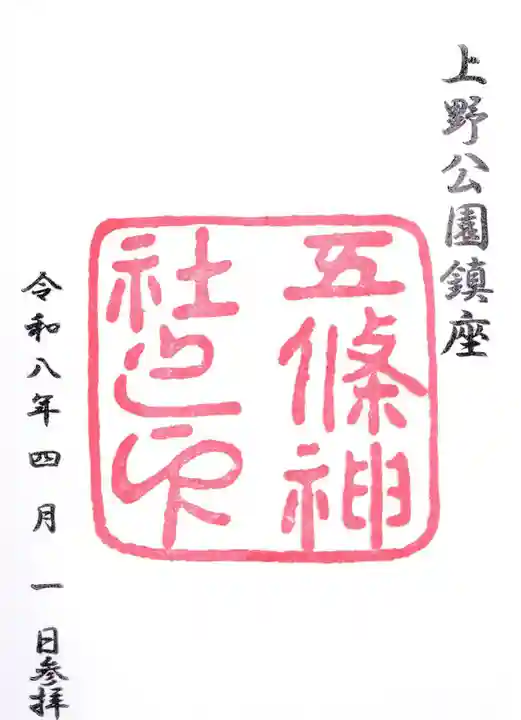 上野公園鎮座
五條神
社之印
令和八年四月一日参拝